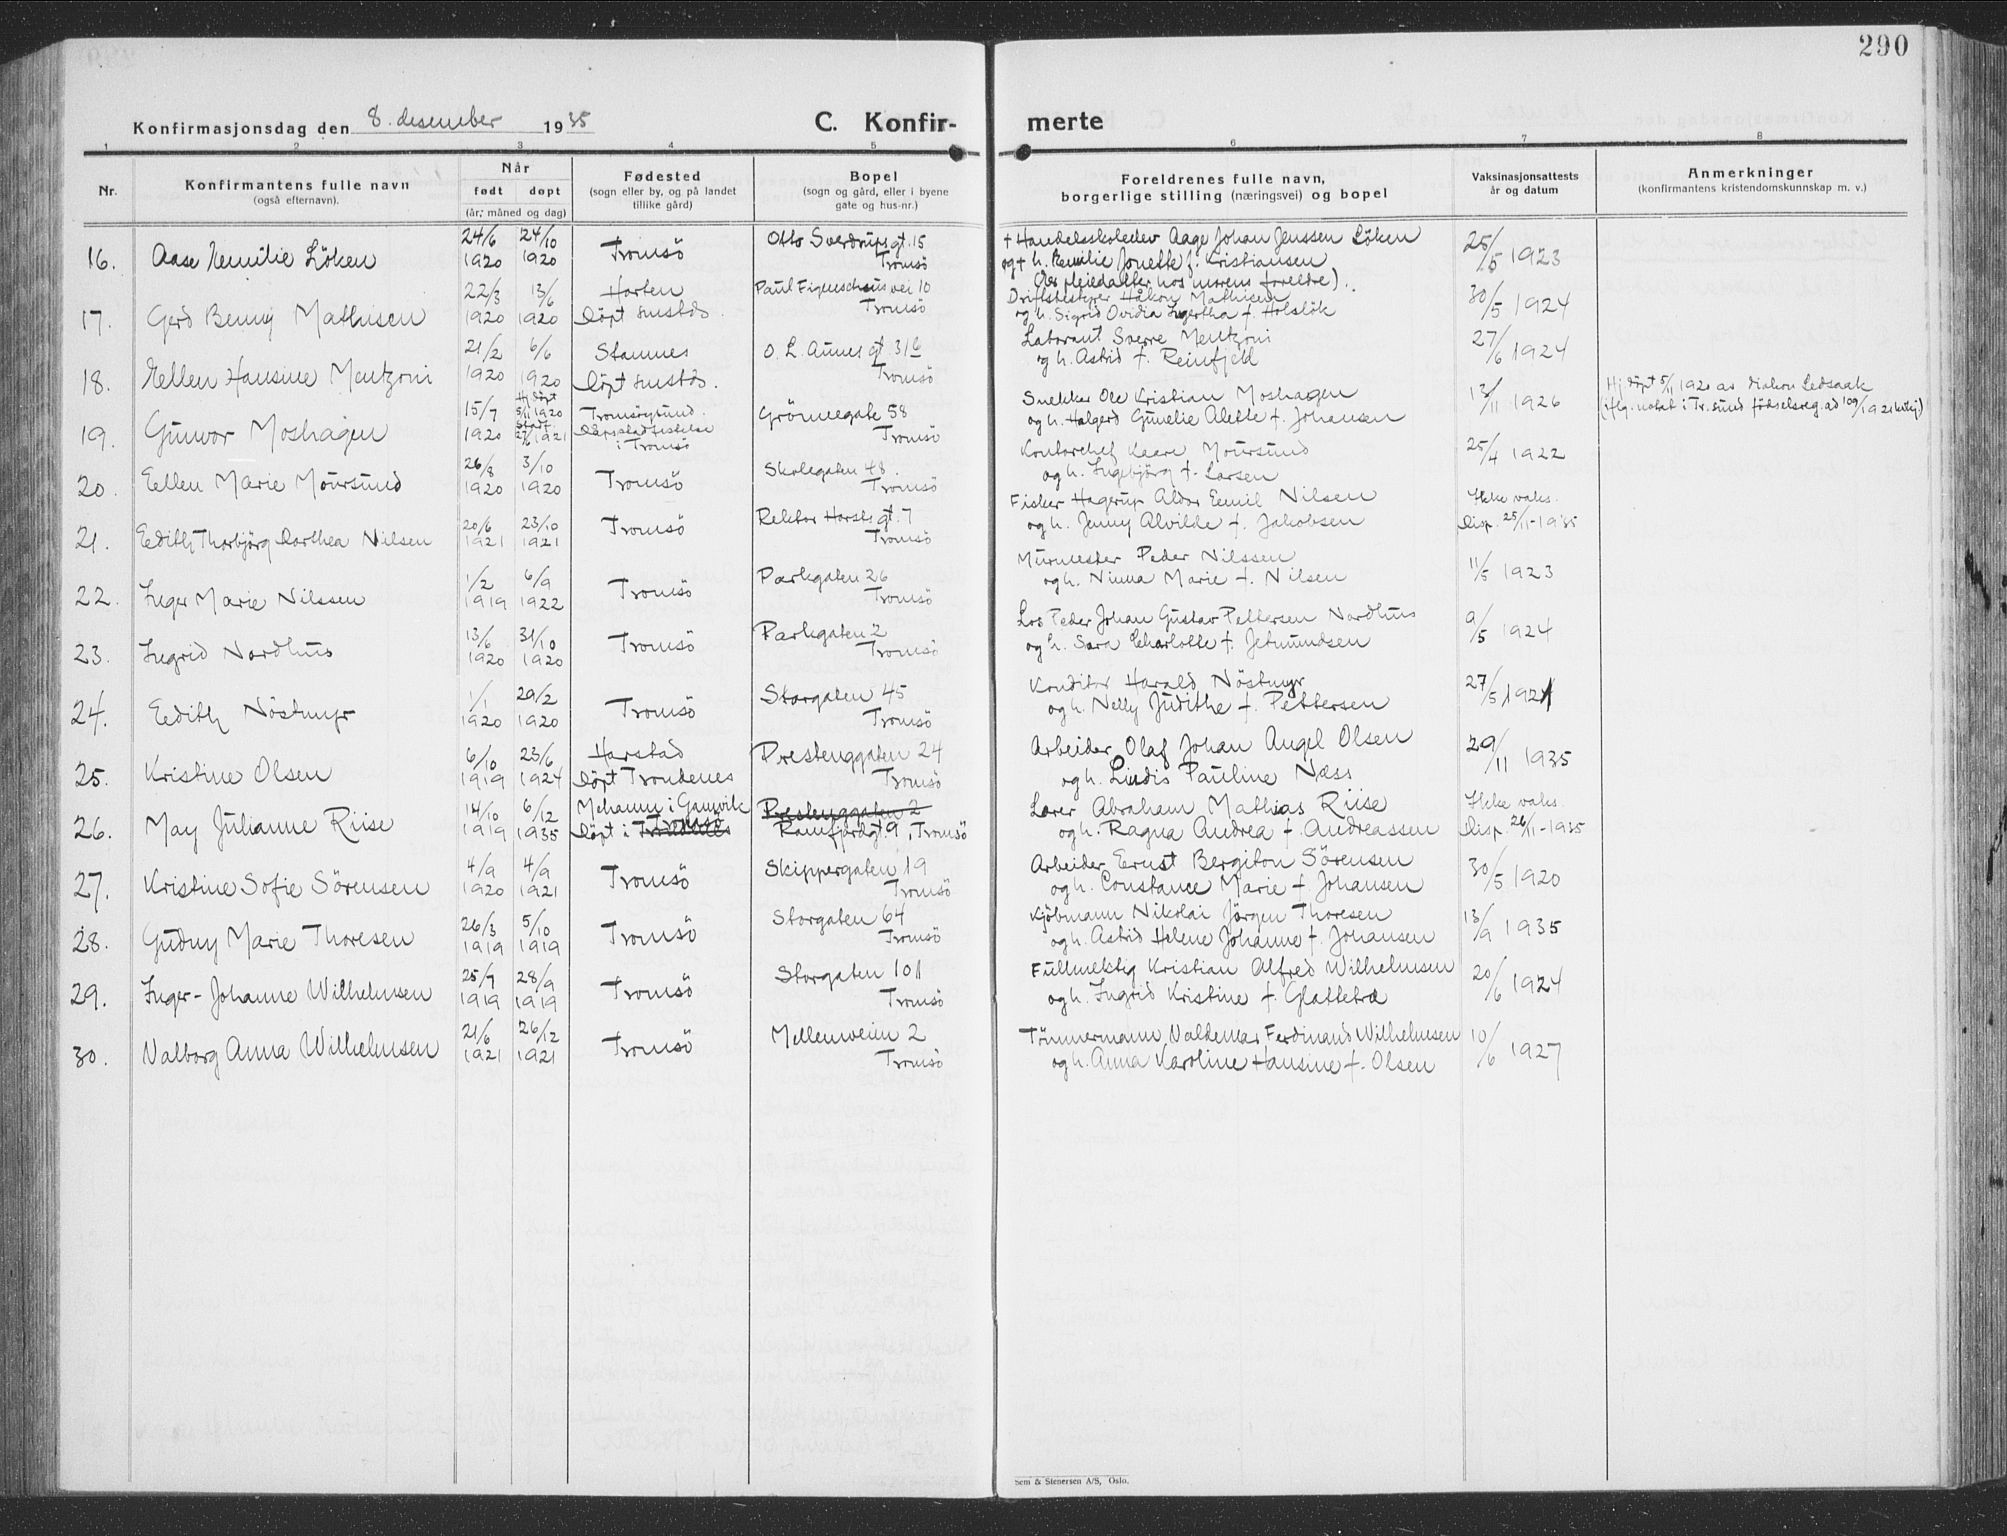 290
Konfirmasjonsdag den 8. desember 1935
C. Konfir- merte
1 2 3 4 5 6 7 8
Nr.
Konfirmantens fulle navn
(også efternavn).
Når
født døpt
(år, måned og dag)
Fødested
(sogn eller by, og på landet
tillike gård)
Bopel
(sogn og gård, eller i byene
gate og hus-nr.)
Foreldrenes fulle navn,
borgerlige stilling (næringsvei) og bopel
Vaksinasjonsattests
år og datum
Anmerkninger
(konfirmantens kristendomskunnskap m. v.)
16. Aase Emilie Löken 24/6 1920 24/10 1920 Tromsö Otto Sverdrups gt. 15 Tromsö
+ Handelsskoleelev Aage Johan Jenssen Löken
og + h. Emilie Jonette f. Kristiansen
(Er pleiedatter hos morens foreldre).
25/5 1923
17. Gerd Benny Mathisen 22/3 1920 13/6 1920 Horten döpt sustds. Paul Figenschaus vei 10 Tromsö
Driftsbestyrer Håkon Mathisen
og h. Sigrid Ovidia Ingertha f. Holslök
30/5 1924
18. Ellen Hansine Mentzoni 21/2 1920 6/6 1920 Stamnes döpt sustds. O. L. Aunes gt 31b Tromsö
Laborant Sverre Mentzoni
og h. Astrid f. Reinfjeld
27/6 1924
19. Gunvor Moshagen 15/7 1920 Hj.döpt 5/11 1920 Stadf. 27/6 1921 Tromsöysund. Dåpsstadfestelse i Tromsö Grönnegate 58 Tromsö
Snekker Ole Kristian Moshagen
og h. Halgerd Gunelie Alette f. Johansen
13/11 1926
Hj.döpt 5/11 1920 av diakon Ledsaak
(iflg. notat i Tr.sund födselsreg. ad 109/1921 kvkj.)
20. Ellen Marie Moursund 26/8 1920 3/10 1920 Tromsö Skolegaten 48. Tromsö
Kontorchef Kaare Moursund
og h. Ingebjörg f. Larsen
25/4 1922
21. Edith Thorbjörg Dorthea Nilsen 20/6 1921 23/10 1921 Tromsö Rektor Horsts gt. 7 Tromsö
Fisker Hagerup Aldor Emil Nilsen
og h. Jenny Alvilde f. Jakobsen
Ikke vaks.
Disp. 25/11-1935
22. Inger Marie Nilssen 1/2 1919 6/9 1922 Tromsö Parkgaten 26 Tromsö
Murmester Peder Nilssen
og h. Ninna Marie f. Nilsen
11/5 1923
23. Ingrid Nordhus 13/6 1920 31/10 1920 Tromsö Parkgaten 2 Tromsö
Los Peder Johan Gustav Pettersen Nordhus
og h. Sara Charlotte f. Jetmundsen
9/5 1924
24. Edith Nöstmyr 1/1 1920 29/2 1920 Tromsö Storgaten 45 Tromsö
Konditor Harald Nöstmyr
og h. Nelly Judithe f. Pettersen
27/5 1921
25. Kristine Olsen 6/10 1919 23/6 1924 Harstad döpt Trondenes Prestenggaten 24 Tromsö
Arbeider Olaf Johan Angel Olsen
og h. Lindis Pauline Næss
29/11 1935
26. May Julianne Riise 14/10 1919 6/12 1935 Mehamn i Gamvik döpt i Tromsö Trondenes Prestenggaten 2 Ramfjordgt. 9, Tromsö
Lærer Abraham Mathias Riise
og h. Ragna Andrea f. Andreassen
Ikke vaks.
Disp. 26/11-1935
27. Kristine Sofie Sörensen 4/9 1920 4/9 1921 Tromsö Skippergaten 19 Tromsö
Arbeider Ernst Bergiton Sörensen
og h. Constance Marie f. Johansen
30/5 1920
28. Gudny Marie Thoresen 26/3 1919 5/10 1919 Tromsö Storgaten 64 Tromsö
Kjöbmann Nikolai Jörgen Thoresen
og h. Astrid Helene Johanne f. Johansen
13/9 1935
29. Inger-Johanne Wilhelmsen 25/7 1919 28/9 1919 Tromsö Storgaten 101 Tromsö
Fullmektig Kristian Alfred Wilhelmsen
og h. Ingrid Kristine f. Glattetræ
20/6 1924
30. Valborg Anna Wilhelmsen 21/6 1921 26/12 1921 Tromsö Mellemveien 2 Tromsö
Tömmermann Valdemar Ferdinand Wilhelmsen
og h. Anna Karoline Hansine f. Olsen
10/6 1927
Sem & Stenersen A/S, Oslo.